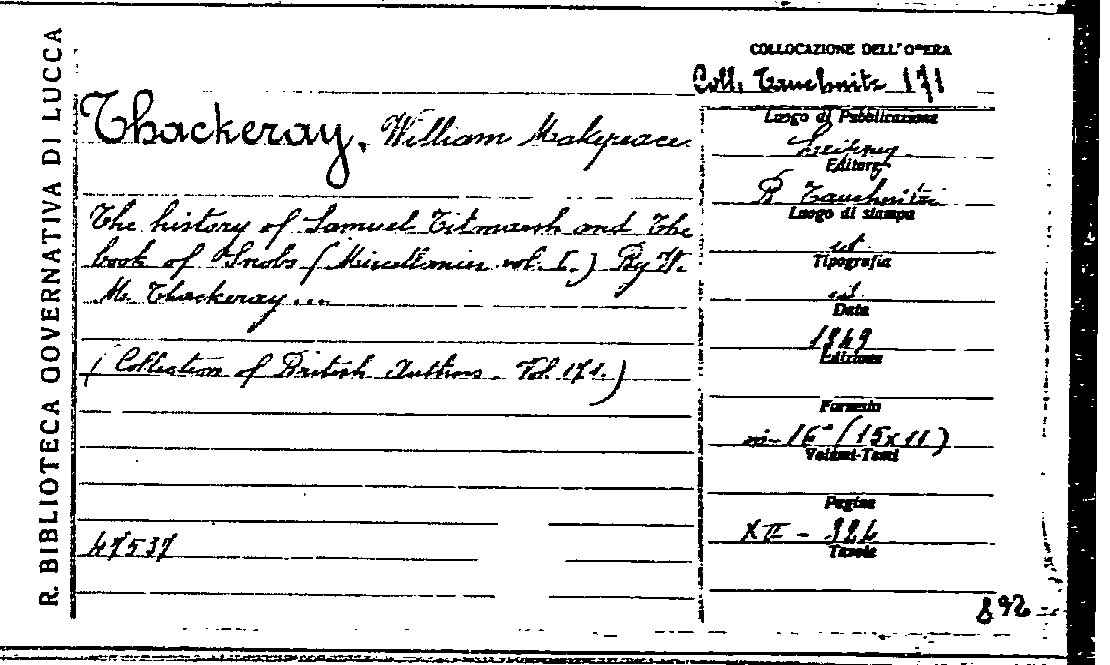 R. BIBLIOTECA GOVERNATIVA DI LUCCA
Thackeray, William Makepeace
The history of Samuel Titmarsh and The
book of Snobs (Miscellanies vol. I.) By W.
M. Thackeray ...
(Collection of British Authors. Vol. 171.)
47537
COLLOCAZIONE DELL'OPERA
Coll. Tauchnitz 171
Luogo di Pubblicazione
Leipzig
Editore
B Tauchnitz
Luogo di stampa
id
Tipografia
id.
Data
1849
Edizione
Formato
in-16° (15x11)
Volumi-Tomi
Pagine
XII -
Tavole
892